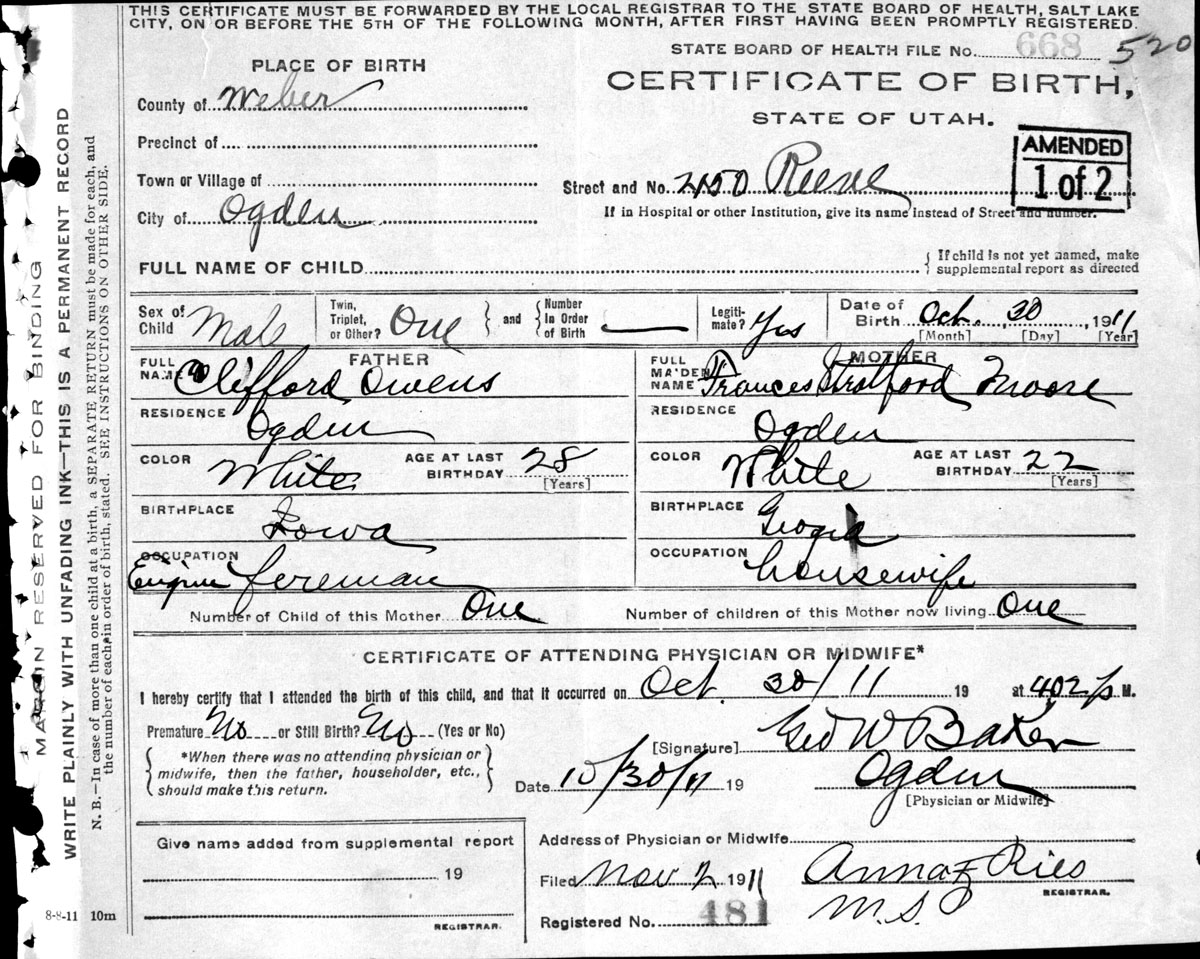 THIS CERTIFICATE MUST BE FORWARDED BY THE LOCAL REGISTRAR TO THE STATE BOARD OF HEALTH, SALT LAKE
CITY, ON OR BEFORE THE 5TH OF THE FOLLOWING MONTH, AFTER FIRST HAVING BEEN PROMPTLY REGISTERED.
STATE BOARD OF HEALTH FILE No. 668 520
PLACE OF BIRTH
CERTIFICATE OF BIRTH,
STATE OF UTAH.
AMENDED
1 of 2
County of Weber
Precinct of
Town or Village of
City of Ogden
Street and No. 2150 Reeve
If in Hospital or other Institution, give its name instead of Street and number.
FULL NAME OF CHILD
{ If child is not yet named, make
supplemental report as directed
Sex of Child Male
Twin, Triplet, or Other? One } and { Number In Order of Birth
Legitimate? Yes
Date of Birth Oct. 30, 1911
[Month] [Day] [Year]
FATHER
FULL NAME Clifford Owens
RESIDENCE Ogden
COLOR White AGE AT LAST BIRTHDAY 28 [Years]
BIRTHPLACE Iowa
OCCUPATION Engine fireman
MOTHER
FULL MAIDEN NAME Frances Stratford Moore
RESIDENCE Ogden
COLOR White AGE AT LAST BIRTHDAY 22 [Years]
BIRTHPLACE Georgia
OCCUPATION housewife
Number of Child of this Mother One Number of children of this Mother now living One
CERTIFICATE OF ATTENDING PHYSICIAN OR MIDWIFE*
I hereby certify that I attended the birth of this child, and that it occurred on Oct. 30/11 19 at 402 p M.
Premature No or Still Birth? No (Yes or No)
{ *When there was no attending physician or
midwife, then the father, householder, etc.,
should make this return. }
[Signature] Geo W Baker
Date 10/30/11 19 Ogden
[Physician or Midwife]
Give name added from supplemental report
19
REGISTRAR.
Address of Physician or Midwife
Filed Nov 2 1911 Anna F Ries
REGISTRAR.
M.S.
Registered No. 481
MARGIN RESERVED FOR BINDING
WRITE PLAINLY WITH UNFADING INK—THIS IS A PERMANENT RECORD
N. B.—In case of more than one child at a birth, a SEPARATE RETURN must be made for each, and
the number of each, in order of birth, stated. SEE INSTRUCTIONS ON OTHER SIDE.
8-8-11 10m